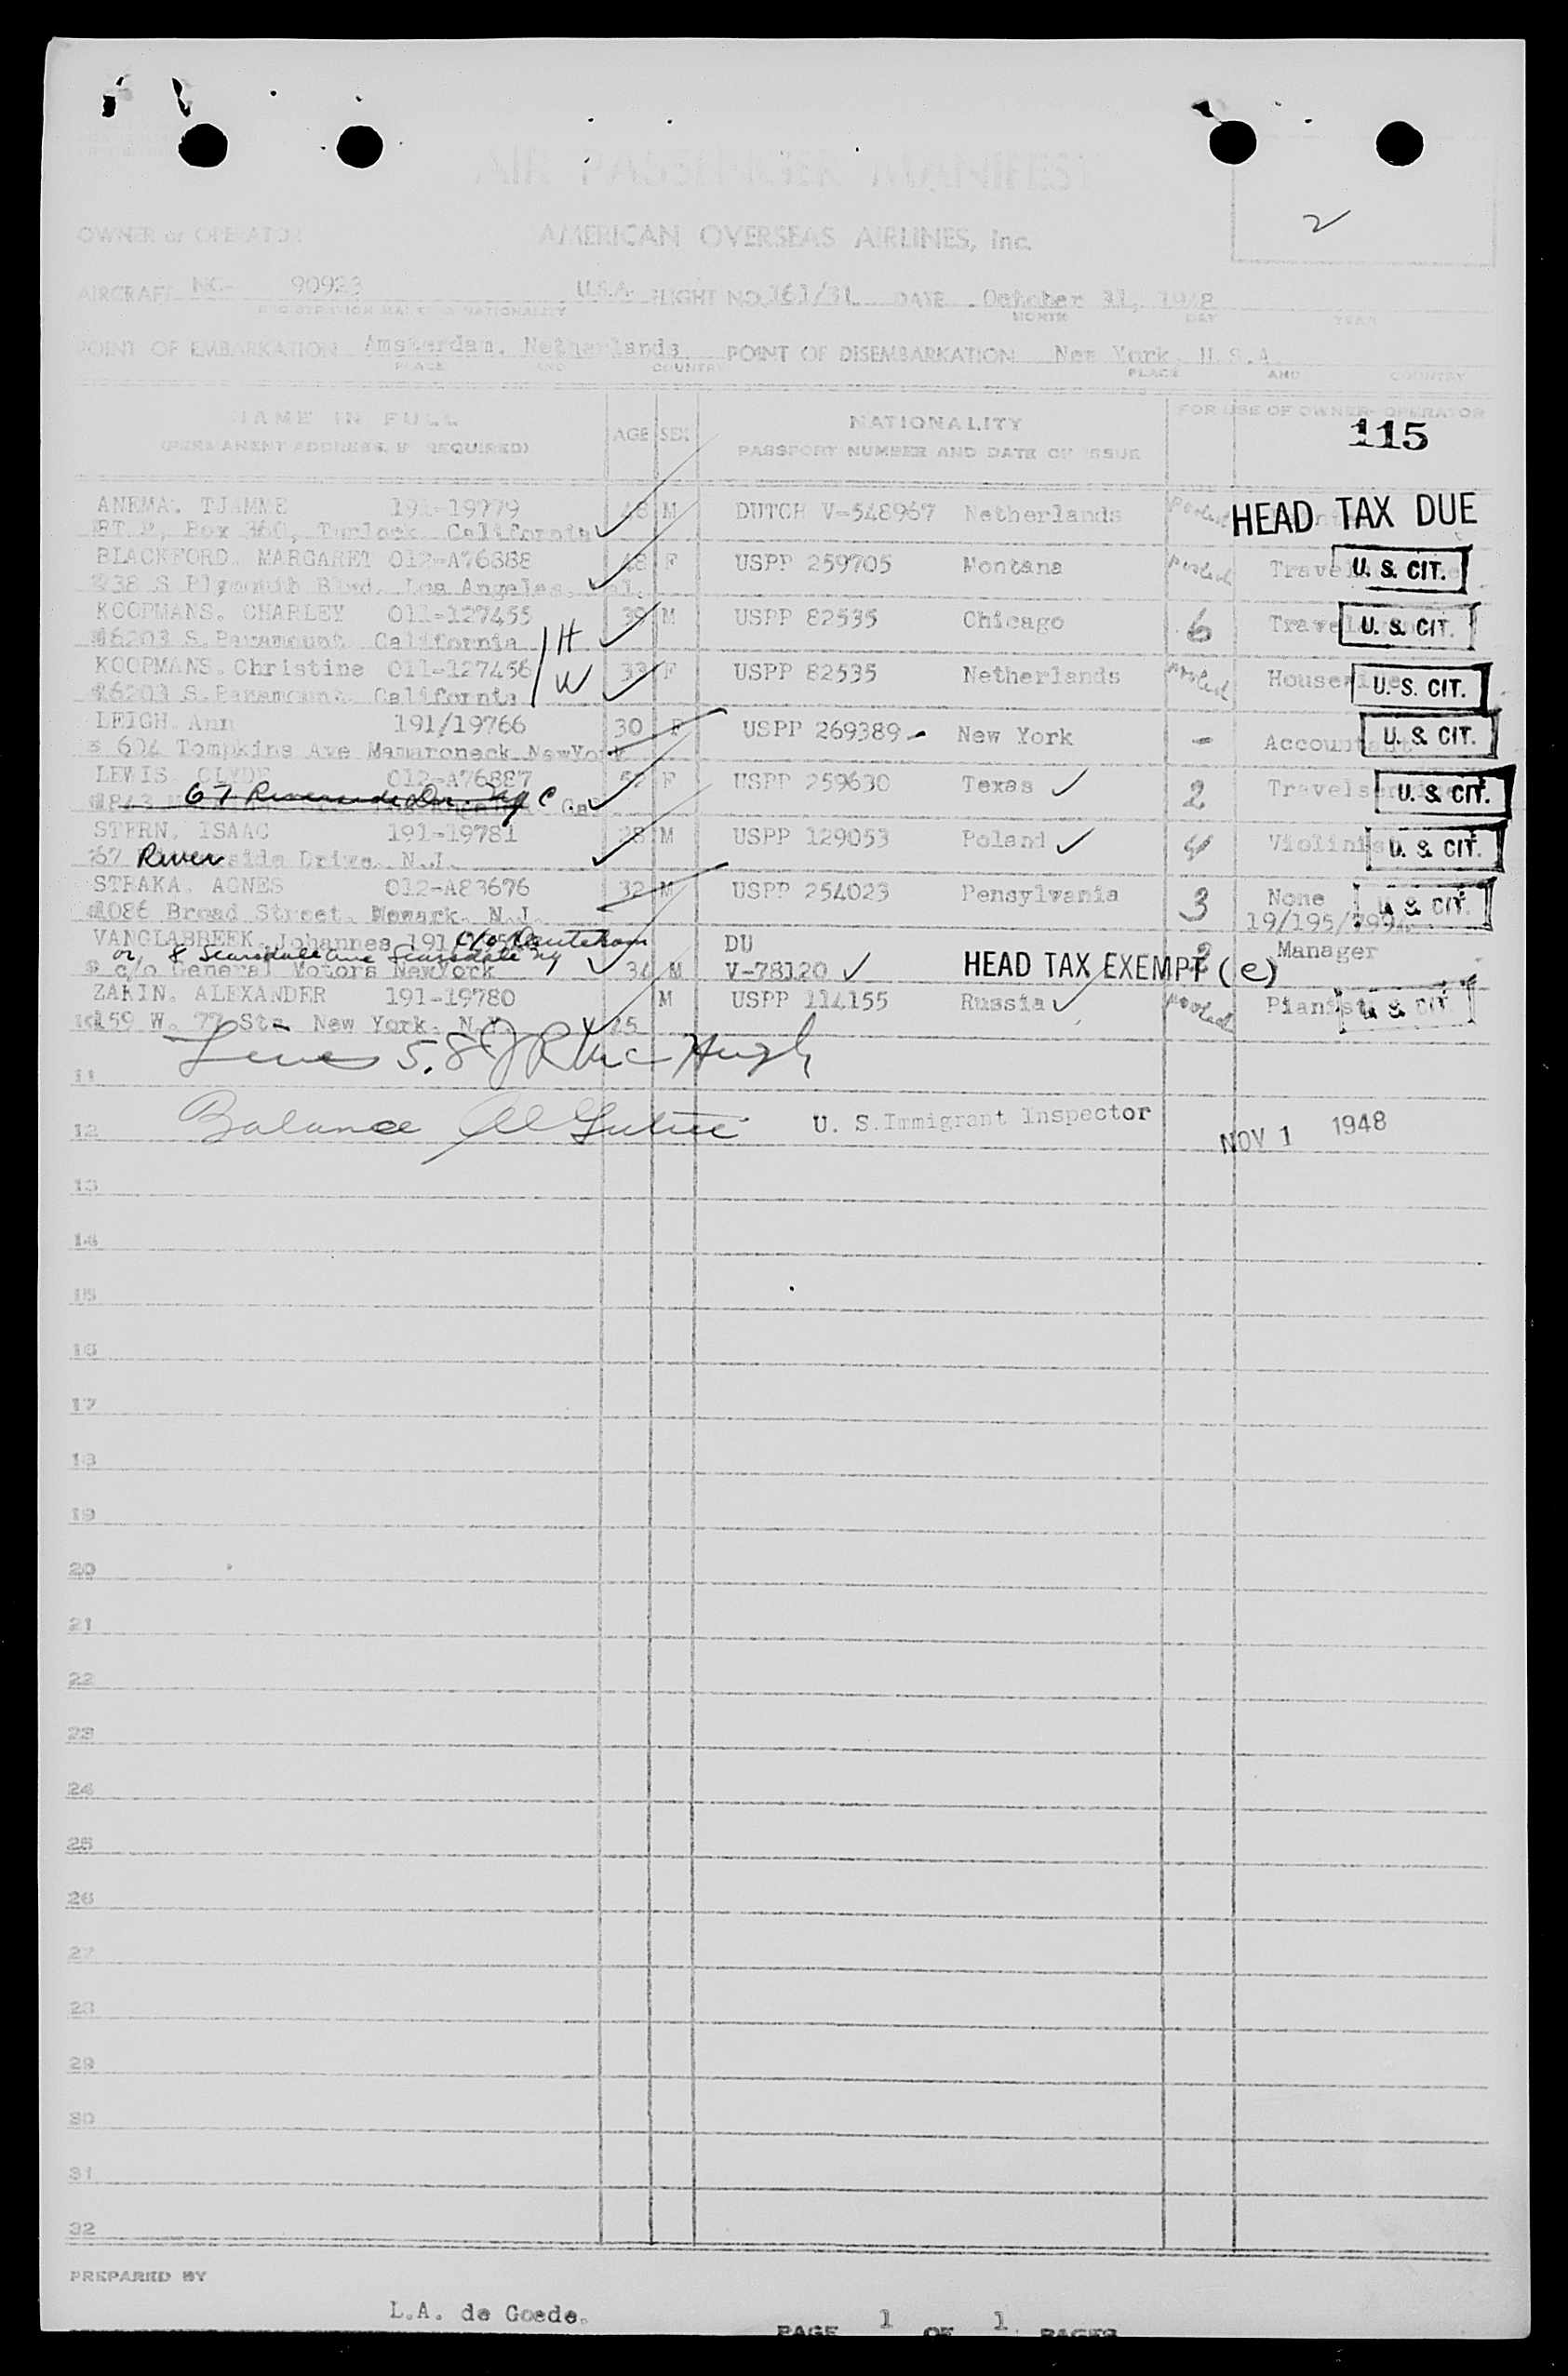 AIR PASSENGER MANIFEST
2
OWNER or OPERATOR AMERICAN OVERSEAS AIRLINES, Inc.
AIRCRAFT NC- 90923 U.S.A. FLIGHT NO. 161/31 DATE October 31, 1948
REGISTRATION MARK AND NATIONALITY MONTH DAY YEAR
POINT OF EMBARKATION Amsterdam, Netherlands POINT OF DISEMBARKATION New York U.S.A.
PLACE AND COUNTRY PLACE AND COUNTRY
NAME IN FULL AGE SEX NATIONALITY FOR USE OF OWNER-OPERATOR
(PERMANENT ADDRESS, IF REQUIRED) PASSPORT NUMBER AND DATE OF ISSUE 115
ANEMA. TJAMME 191-19779 48 M DUTCH V-548967 Netherlands HEAD TAX DUE
RT 2, Box 360, Turlock California
BLACKFORD. MARGARET 012-A76888 48 F USPP 259705 Montana U. S. CIT.
S Plymouth Blvd. Los Angeles. Cal.
KOOPMANS. CHARLEY 011-127455 39 M USPP 82535 Chicago 6 U. S. CIT.
16203 S. Paramount California H
KOOPMANS. Christine 011-127456 33 F USPP 82535 Netherlands Housewife U. S. CIT.
16203 S. Paramount California W
LEIGH. Ann 191/19766 30 F USPP 269389 - New York - Accountant U. S. CIT.
604 Tompkins Ave Mamaroneck NewYork
LEWIS CLYDE 012-A76887 57 F USPP 259630 Texas 2 U. S. CIT.
67 Riverside Dr. NYC
STERN. ISAAC 191-19781 28 M USPP 129053 Poland 4 Violinist U. S. CIT.
67 Riverside Drive. N.J.
STRAKA. AGNES 012-A83676 32 M USPP 254023 Pensylvania 3 None U. S. CIT.
1086 Broad Street. Newark. N.J. 19/195/7994
VANGLABBEEK. Johannes DU 2 Manager
or 8 Scarsdale Ave Scarsdale NY
c/o General Motors NewYork 34 M V-78120 HEAD TAX EXEMPT (e)
ZAKIN. ALEXANDER 191-19780 M USPP 114155 Russia Pianist U. S. CIT.
159 W. 77 St. New York. N.Y. 45
Lines 5.8 J R McHugh
11
Balance
12 U. S. Immigrant Inspector NOV 1 1948
13
14
15
16
17
18
19
20
21
22
23
24
25
26
27
28
29
30
31
32
PREPARED BY
L.A. de Goede.
PAGE 1 OF 1 PAGES